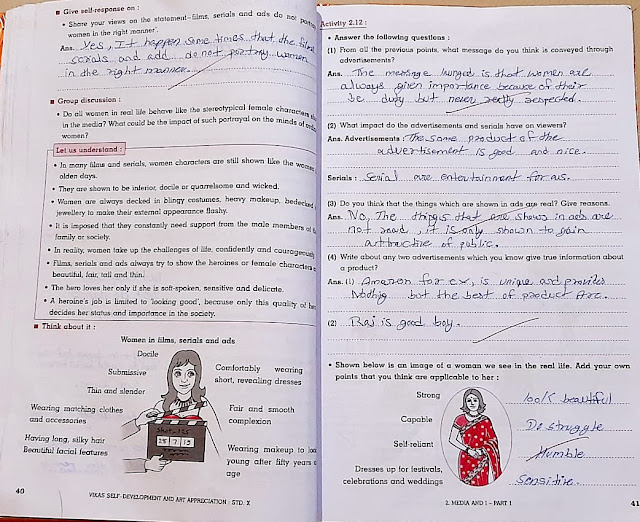 Give self-response on :
Share your views on the statement-films, serials and ads do not portray
women in the right manner'.
Ans. Yes, It happen some times that the films
serials and add do not portray women
in the right manner.
Group discussion :
Do all women in real life behave like the stereotypical female characters
in the media? What could be the impact of such portrayal on the minds of
women?
Let us understand :
In many films and serials, women characters are still shown like the women
olden days.
They are shown to be inferior, docile or quarrelsome and wicked.
Women are always decked in blingy costumes, heavy makeup, bedecked
jewellery to make their external appearance flashy.
It is imposed that they constantly need support from the male members of
family or society.
In reality, women take up the challenges of life, confidently and courageously
Films, serials and ads always try to show the heroines or female characters
beautiful, fair, tall and thin.
The hero loves her only if she is soft-spoken, sensitive and delicate.
A heroine's job is limited to 'looking good', because only this quality of her
decides her status and importance in the society.
Think about it :
Women in films, serials and ads
Docile
Submissive
Thin and slender
Wearing matching clothes
and accessories
Having long, silky hair
Beautiful facial features
Comfortably wearing
short, revealing dresses
Fair and smooth
complexion
Wearing makeup to look
young after fifty years
age
40
VIKAS SELF-DEVELOPMENT AND ART APPRECIATION - STD. X
Activity 2.12 :
Answer the following questions :
(1) From all the previous points, what message do you think is conveyed through
advertisements?
Ans. The message is that women are
always given importance because of their
be duty but never really respected.
(2) What impact do the advertisements and serials have on viewers?
Ans. Advertisements : The some product of the
advertisement is good and nice.
Serials : Serial are entertainment for us.
(3) Do you think that the things which are shown in ads are real? Give reasons.
Ans. No, The things that are shown in ads are
not , it is only shown to gain
attractive of public.
(4) Write about any two advertisements which you know give true information about
a product?
Ans. (1) Amazon for ex, is unique and provides
Nothig but the best of product
(2) Raj is good boy.
Shown below is an image of a woman we see in the real life. Add your own
points that you think are applicable to her :
Strong
Capable
Self-reliant
Dresses up for festivals,
celebrations and weddings
look beautiful
Do struggle
Humble
Sensitive.
2. MEDIA AND I - PART 1
41